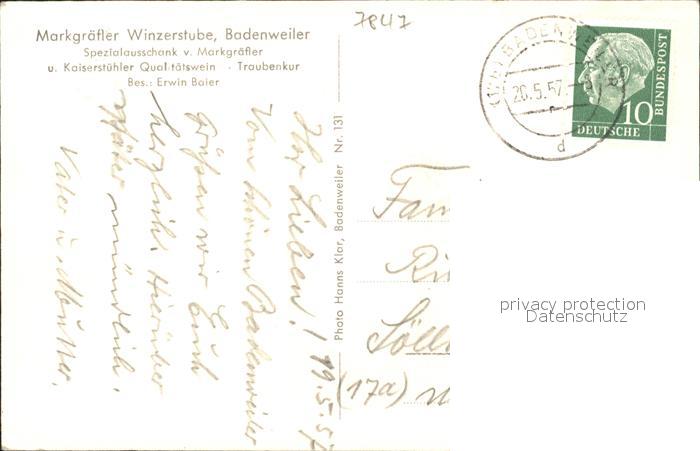 Markgräfler Winzerstube, Badenweiler
Spezialausschank v. Markgräfler
u. Kaiserstühler Qualitätswein · Traubenkur
Bes.: Erwin Baier
7847
BADENW
20.5.57
d
10
DEUTSCHE
BUNDESPOST
19.5.57
Ihr Lieben!
Vom schönen Badenweiler
grüßen wir Euch
herzlich. Hierüber
später mündlich.
Vater u. Mutter.
Photo Hanns Klar, Badenweiler Nr. 131
Fam
Ri
Söll
(17a)
privacy protection
Datenschutz